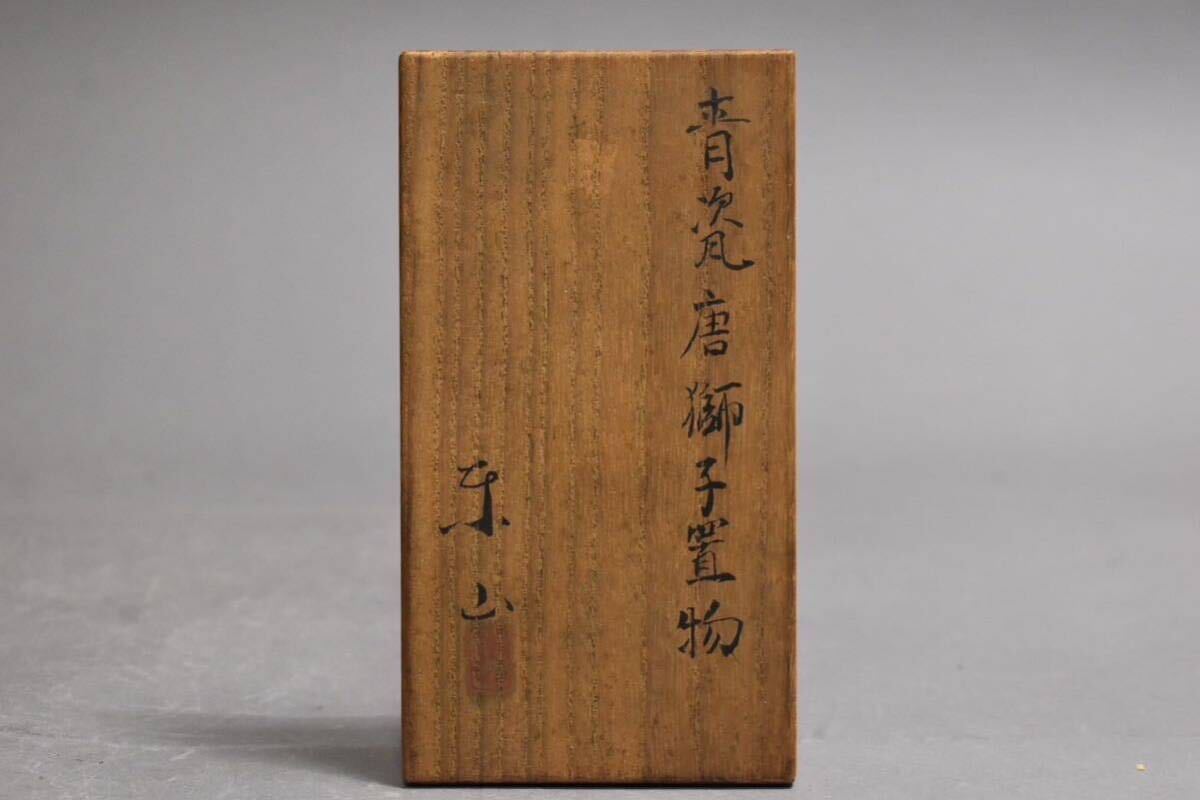 青瓷唐獅子置物
東山